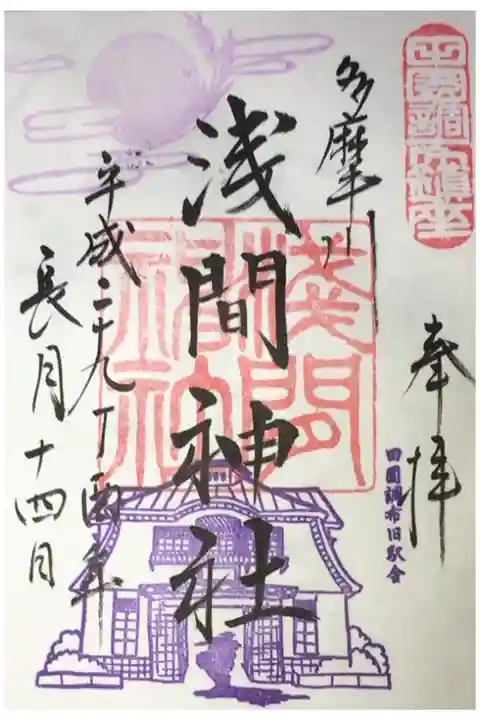 田園調布鎮座
奉拝
田園調布旧駅舎
多摩川
浅間神社
淺間
神社
平成二十九丁酉年
長月十四日